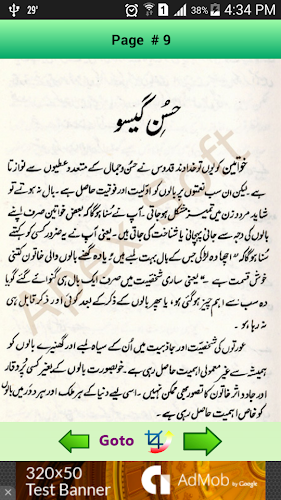 29°
1
38%
4:34 PM
Page # 9
حُسنِ گیسو
خواتین کو یوں تو خداوند قدوس نے حسن و جمال کے متعدد عطیوں سے نوازا
ہے۔ لیکن ان سب نعمتوں پر بالوں کو اوّلیت اور فوقیت حاصل ہے۔ بال نہ ہوتے تو
شاید مرد و زن میں تمیز مشکل ہو جاتی۔ آپ نے سنا ہوگا کہ بعض خواتین صرف اپنے
بالوں کی وجہ سے جانی پہچانی یا شناخت کی جاتی ہیں۔ یعنی آپ نے یہ ضرور کسی کو کہتے
سنا ہوگا کہ "اچھا وہ لڑکی جس کے بال بہت لمبے ہیں" یا "وہ گھنے بالوں والی خاتون کتنی
خوش قسمت ہے" یعنی ساری شخصیت میں صرف ایک بال ہی گنوائے گئے گویا
وہ سب سے اہم چیز ہو گئی ہو، یا پھر بالوں کے ذکر کے بعد کوئی اور ذکر قابل ہی
نہ رہا ہو۔
عورتوں کی شخصیت اور جاذبیت میں اُن کے سیاہ لمبے اور گھنیرے بالوں کو
ہمیشہ سے غیر معمولی اہمیت حاصل رہی ہے۔ خوبصورت بالوں کے بغیر کسی پُر وقار
اور جادو اثر خاتون کا تصور بھی ممکن نہیں۔ اسی لیے دنیا کے ہر ملک اور ہر دور میں بالوں
کو خاص اہمیت حاصل رہی ہے۔
Apex Soft
Goto
320x50
Test Banner
AdMob by Google